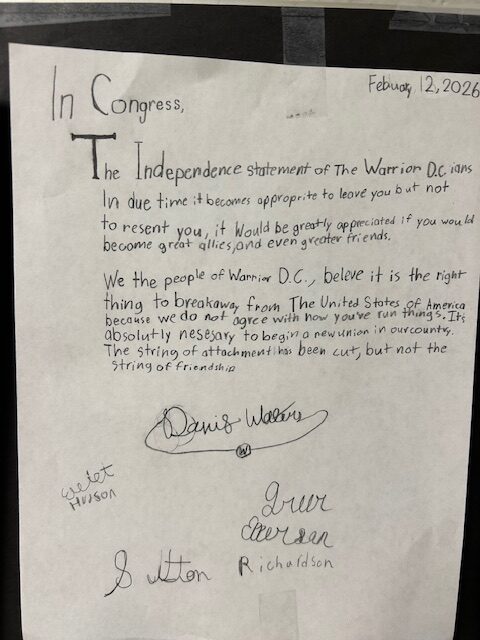 Febuary 12, 2026
In Congress,
The Independence statement of The Warrior D.C.ians
In due time it becomes approprite to leave you but not
to resent you, it would be greatly appreciated if you would
become great allies, and even greater friends.
We the people of Warrior D.C., beleve it is the right
thing to breakaway from The United States of America
because we do not agree with how you've run things. Its
absolutly nesesary to begin a new union in our country.
The string of attachment has been cut, but not the
string of friendship
W
Sutton Richardson